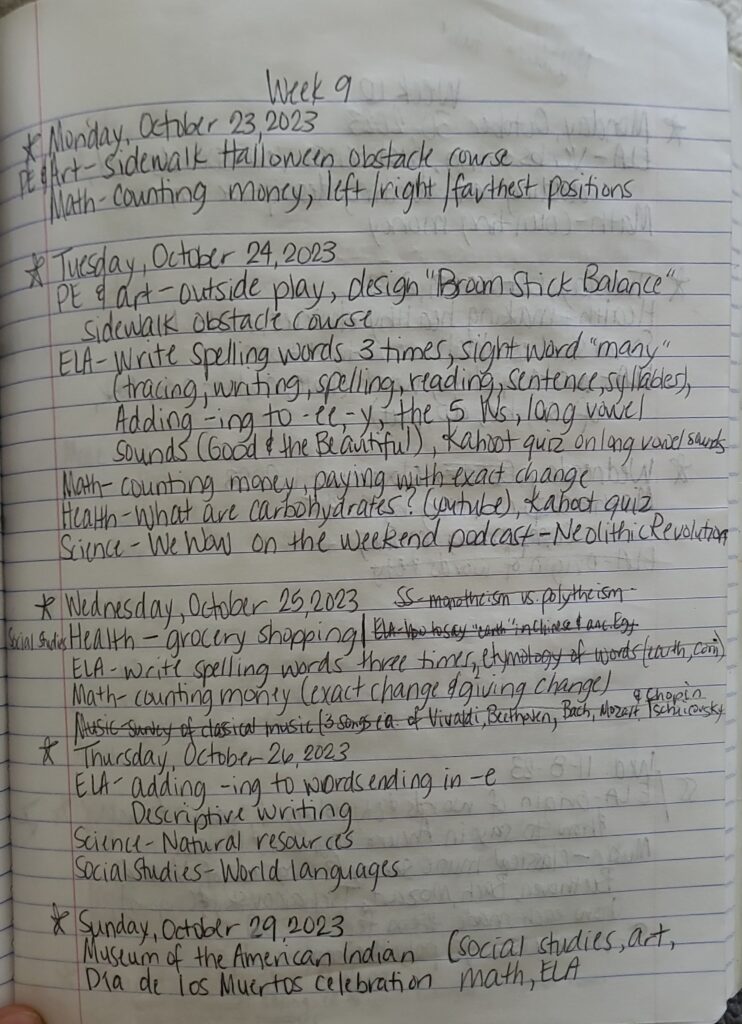 Week 9
* Monday, October 23, 2023
PE & Art - Sidewalk Halloween obstacle course
Math - Counting money, left/right/farthest positions
* Tuesday, October 24, 2023
PE & art - outside play, design "Broom Stick Balance"
sidewalk obstacle course
ELA - Write spelling words 3 times, sight word "many"
(tracing, writing, spelling, reading, sentence, syllables),
Adding -ing to -ee, -y, the 5 Ws, long vowel
sounds (Good & the Beautiful), Kahoot quiz on long vowel sounds
Math - counting money, paying with exact change
Health - What are carbohydrates? (youtube), Kahoot quiz
Science - We Wow on the weekend podcast - Neolithic Revolution
* Wednesday, October 25, 2023 SS - monotheism vs. polytheism
Social Studies Health - grocery shopping/ ELA - How to say "earth" in Chinese & anc. Egy
ELA - write spelling words three times, etymology of words (earth, corn)
Math - counting money (exact change & giving change)
Music - Survey of classical music (3 songs ea. of Vivaldi, Beethoven, Bach, Mozart & Chopin
* Thursday, October 26, 2023
ELA - adding -ing to words ending in -e
Descriptive writing
Science - Natural resources
Social Studies - World languages
* Sunday, October 29, 2023
Museum of the American Indian (social studies, art,
Día de los Muertos celebration math, ELA